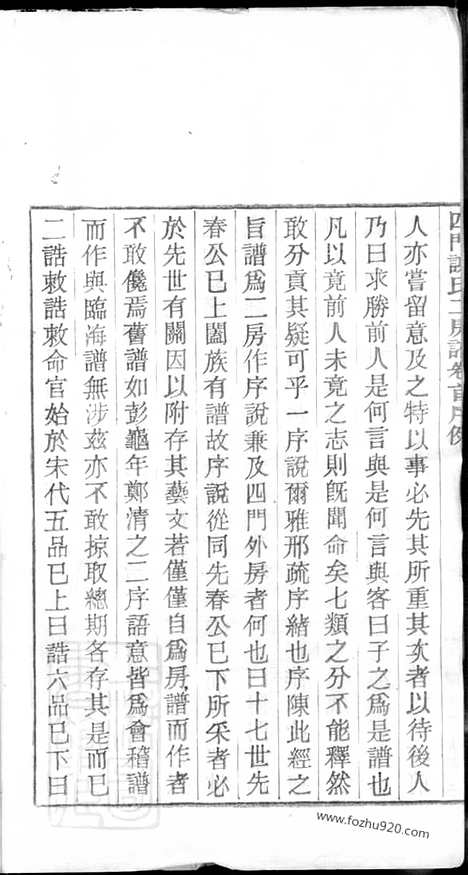 四門謝氏二房譜卷首序例
人亦嘗留意及之特以事必先其所重其次者以待後人
乃曰求勝前人是何言與是何言與客曰子之為是譜也
凡以竟前人未竟之志則旣聞命矣七類之分不能釋然
敢分貢其疑可乎一序說爾雅邢疏序緒也序陳此經之
旨譜爲二房作序說兼及四門外房者何也曰十七世先
春公已上闔族有譜故序說從同先春公已下所采者必
於先世有關因以附存其藝文若僅僅自爲房譜而作者
不敢儳焉舊譜如彭龜年鄭清之二序語意皆爲會稽譜
而作與臨海譜無涉茲亦不敢掠取總期各存其是而已
二誥敕誥敕命官始於宋代五品已上曰誥六品已下曰
www.fozhu920.com